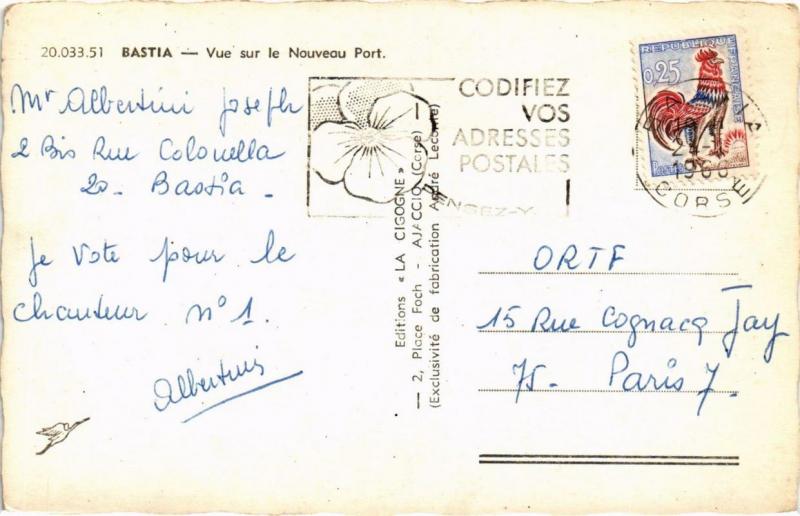 20.033.51 BASTIA — Vue sur le Nouveau Port.
Mr Albertini Joseph
2 Bis Rue Colonella
20 - Bastia -
Je vote pour le
chanteur n° 1.
Albertini
Editions « LA CIGOGNE »
— 2, Place Foch - AJACCIO (Corse) —
(Exclusivité de fabrication André Leconte)
CODIFIEZ
VOS
ADRESSES
POSTALES
PENSEZ-Y
REPUBLIQUE FRANÇAISE
0,25
1966
CORSE
ORTF
15 Rue Cognacq Jay
75 - Paris 7.